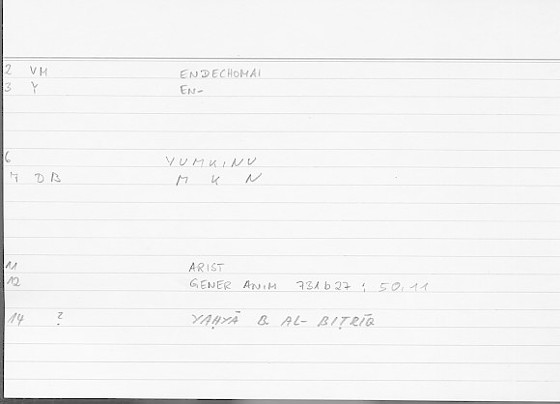 2 VM ENDECHOMAI
3 Y EN-
6 YUMKINU
7 DB M K N
11 ARIST
12 GENER ANIM 731b27 ; 50,11
14 ? YAḤYĀ B AL-BIṬRĪQ